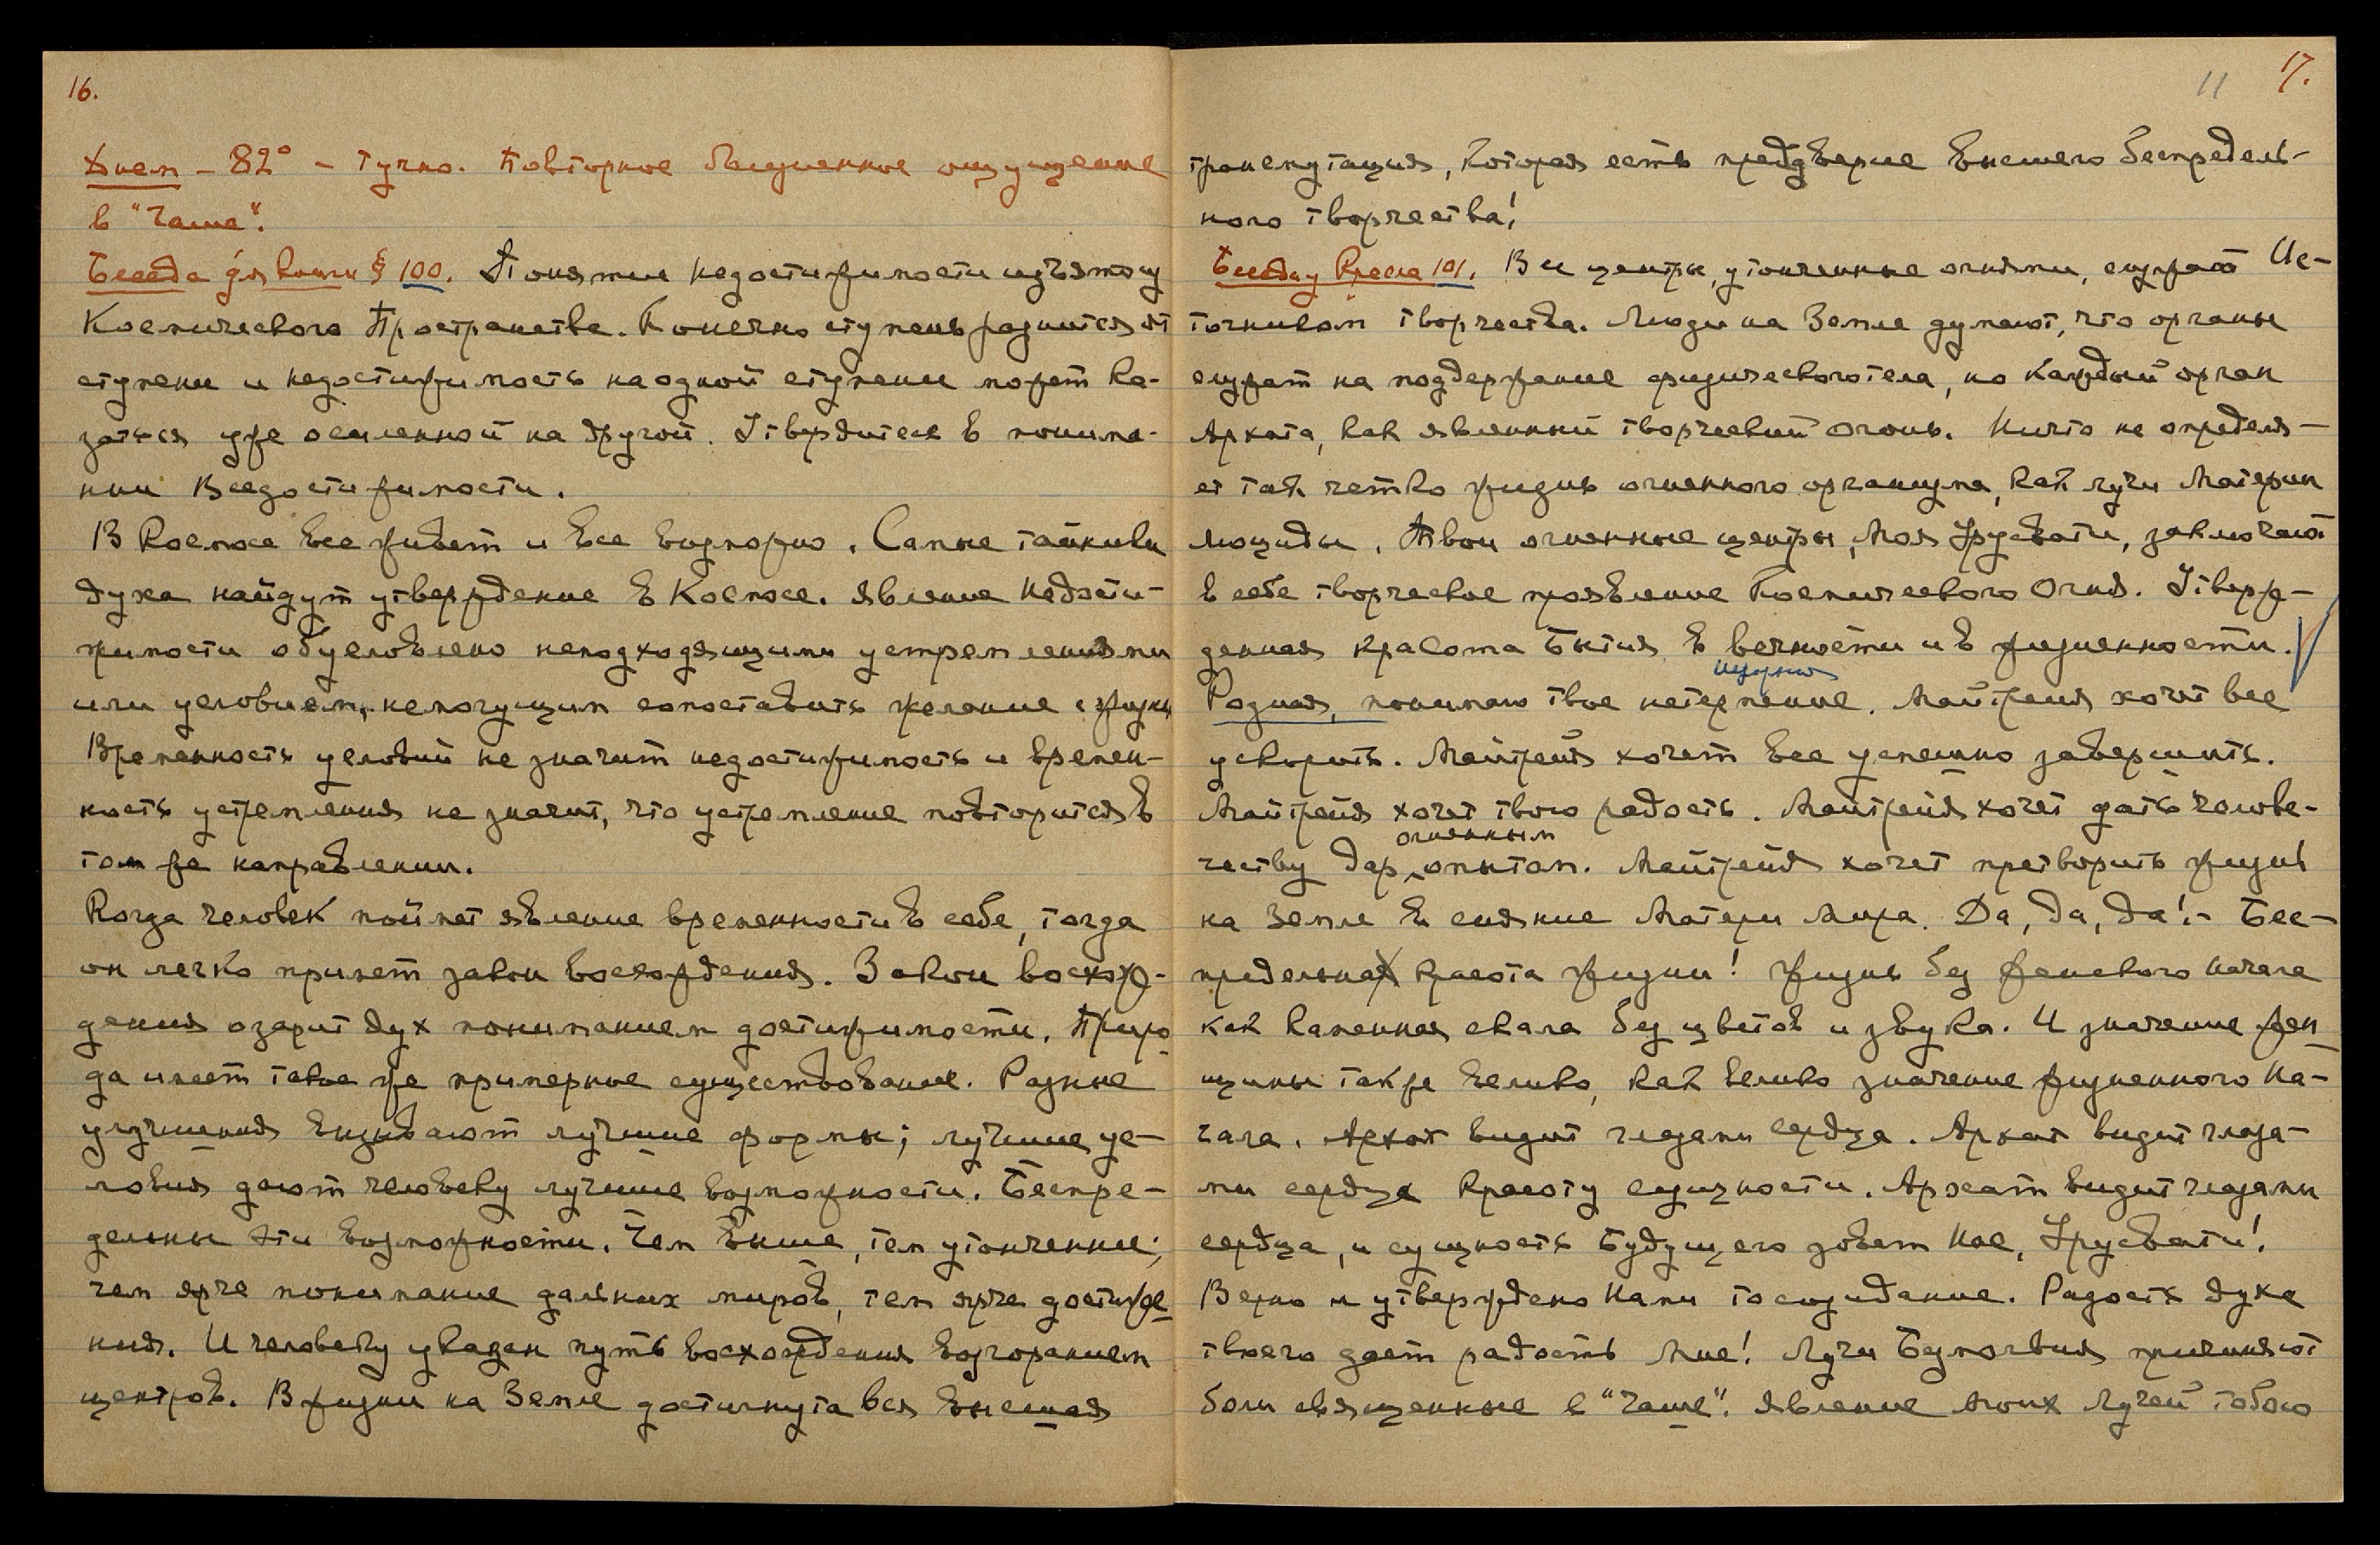 16.
Днем – 82° – Тучно. Повторное болезненное ощущение
в "Чаше".
Беседа для книги § 100. Понятие недостижимости изъято из
Космического Пространства. Конечно ступень разнится от
ступени и недостижимость на одной ступени может ка-
заться уже осиленной на другой. Утвердитесь в понима-
нии Вседостижимости.
В Космосе все живет и все возможно. Самые тайники
духа найдут утверждение в Космосе. Явление недости-
жимости обусловлено неподходящими устремлениями
или условием, немогущим сопоставить желание с жизнью
Временность условий не значит недостижимость и времен-
ность устремления не значит, что устремление повторится в
том же направлении.
Когда человек поймет явление временности в себе, тогда
он легко примет закон восхождения. Закон восхож-
дения озарит дух пониманием достижимости. Приро-
да имеет такое же примерное существование. Разные
улучшения вызывают лучшие формы; лучшие ус-
ловия дают человеку лучшие возможности. Беспре-
дельны эти возможности. Чем выше, тем утонченнее;
чем ярче понимание дальних миров, тем ярче достиже-
ния. И человеку указан путь восхождения возгоранием
центров. В жизни на Земле достигнута вся высшая
11 17.
трансмутация, которая есть преддверие высшего беспредель-
ного творчества!
Беседа у Кресла 101. Все центры, утонченные огнями, служат Ис-
точником творчества. Люди на Земле думают, что органы
служат на поддержание физического тела, но каждый орган
Архата, как явленный творческий огонь. Ничто не определя-
ет так четко жизнь огненного организма, как лучи Материи
Люциды. Твои огненные центры, Моя Урусвати, заключают
в себе творческое проявление Космического Огня. Утверж-
денная красота Бытия в вечности и в жизненности.
Родная, понимаю твое нетерпение. Майтрейя хочет все
ускорить. Майтрейя хочет все успешно завершить.
Майтрейя хочет твою радость. Майтрейя хочет дать челове-
огненным
честву дар опытом. Майтрейя хочет претворить жизнь
на Земле в сияние Матери Мира. Да, да, да! – Бес-
предельна красота жизни! Жизнь без женского начала
как каменная скала без цветов и звука. И значение жен-
щины также велико, как велико значение жизненного На-
чала. Архат видит глазами сердца. Архат видит глаза-
ми сердца красоту сущности. Архат видит глазами
сердца, и сущность Будущего зовет Нас, Урусвати!
Верно и утверждено Нами то созидание. Радость духа
твоего дает радость Мне! Лучи Безмолвия причиняют
боли священные в "Чаше". Явление Моих Лучей тобою